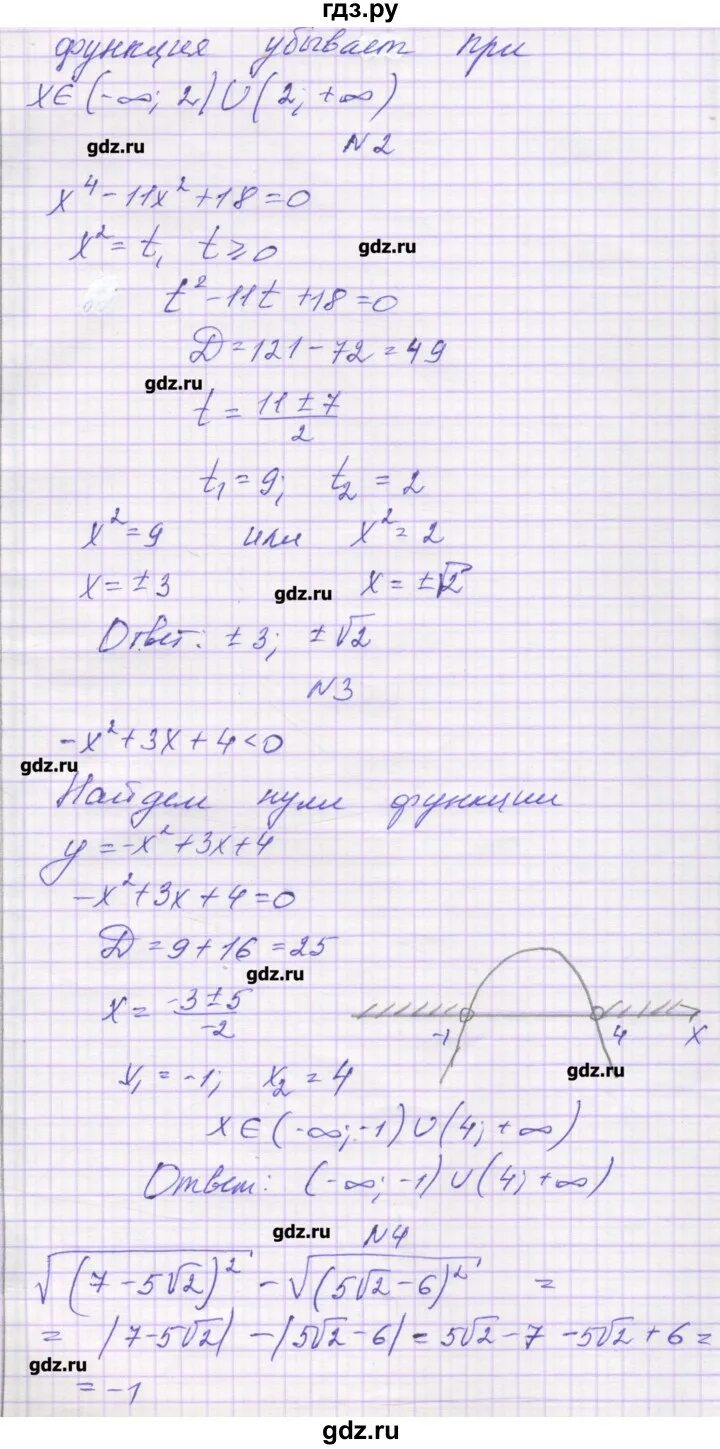 гдз.ру
функция убывает при
x∈(-∞; 2)∪(2; +∞)
gdz.ru
N2
x⁴-11x²+18=0
x²=t, t≥0
gdz.ru
t²-11t+18=0
D=121-72=49
gdz.ru
t = (11±7)/2
t₁=9; t₂=2
x²=9 или x²=2
x=±3 x=±√2
gdz.ru
Ответ: ±3; ±√2
N3
-x²+3x+4<0
gdz.ru
Найдем нули функции
y=-x²+3x+4
-x²+3x+4=0
D=9+16=25
gdz.ru
x = (-3±5)/(-2)
-1 4 x
x₁=-1; x₂=4
gdz.ru
x∈(-∞;-1)∪(4;+∞)
Ответ: (-∞;-1)∪(4;+∞)
gdz.ru
N4
√((7-5√2)²) - √((5√2-6)²) =
= |7-5√2| - |5√2-6| = 5√2-7-5√2+6=
gdz.ru
= -1
gdz.ru